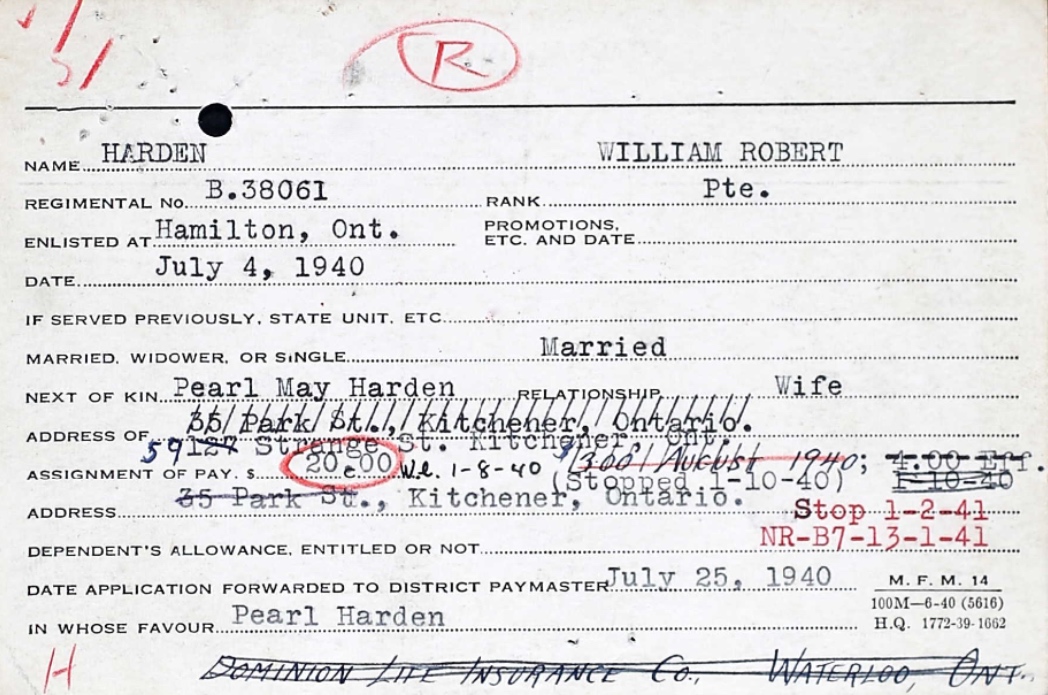 R
NAME HARDEN WILLIAM ROBERT
REGIMENTAL No. B.38061 RANK Pte.
ENLISTED AT Hamilton, Ont. PROMOTIONS, ETC. AND DATE
DATE July 4, 1940
IF SERVED PREVIOUSLY, STATE UNIT, ETC.
MARRIED, WIDOWER, OR SINGLE Married
NEXT OF KIN Pearl May Harden RELATIONSHIP Wife
ADDRESS OF 35 Park St., Kitchener, Ontario.
59 127 Strange St. Kitchener, Ont.
ASSIGNMENT OF PAY. $ 20.00 w.e. 1-8-40 August 1940; 4.00 Eff.
(Stopped 1-10-40) 1-10-40
ADDRESS 35 Park St., Kitchener, Ontario. Stop 1-2-41
DEPENDENT'S ALLOWANCE, ENTITLED OR NOT NR-B7-13-1-41
DATE APPLICATION FORWARDED TO DISTRICT PAYMASTER July 25, 1940 M. F. M. 14
100M—6-40 (5616)
IN WHOSE FAVOUR Pearl Harden H.Q. 1772-39-1662
H DOMINION LIFE INSURANCE Co., WATERLOO, ONT.